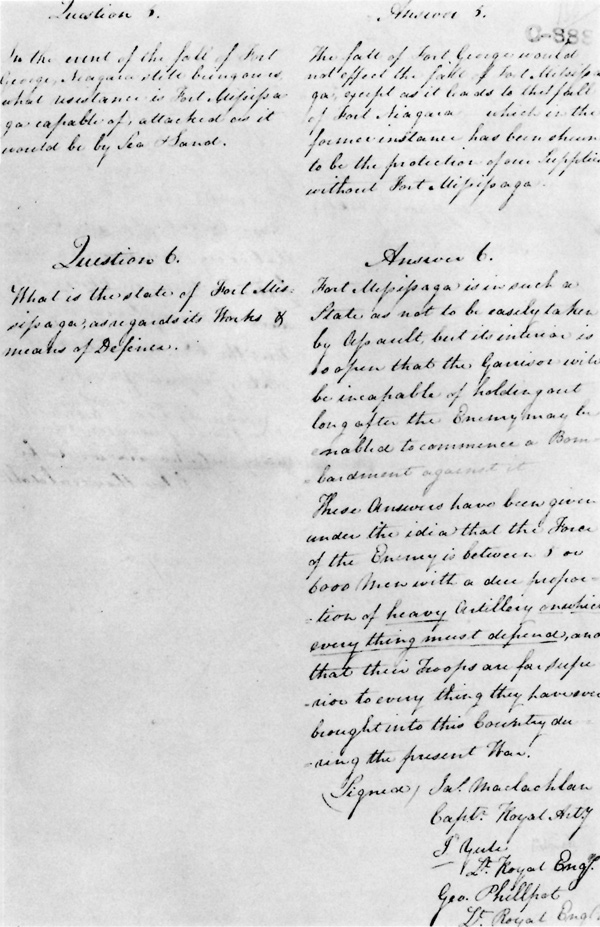 Question 5.
In the event of the fall of Fort
George, Niagara still being ours
what resistance is Fort Mississa
ga capable of, attacked as it
would be by Sea & Land.
Answer 5.
The fall of Fort George would
not effect the fall of Fort Mississ
ga, except as it leads to the fall
of Fort Niagara which in the
former instance has been shewn
to be the protection of our Supplies
without Fort Missisaga.
Question 6.
What is the state of Fort Mis-
sisaga, as regards its Works &
means of Defence.
Answer 6.
Fort Missisaga is in such a
State as not to be easily taken
by Assault, but its interior is
so open that the Garrison will
be incapable of holding out
long after the Enemy may be
enabled to commence a Bom-
bardment against it
These Answers have been given
under the idea that the Force
of the Enemy is between 5 or
6000 Men with a due propor-
-tion of heavy Artillery on which
every thing must depend, and
that their Troops are far supe
-rior to every thing they have ever
brought into this Country du
-ring the present War.
(Signed) Jas. Maclachlan
Captn. Royal Arty
P Yule
Lt. Royal Engs.
Geo. Phillpot
Lt. Royal Eng